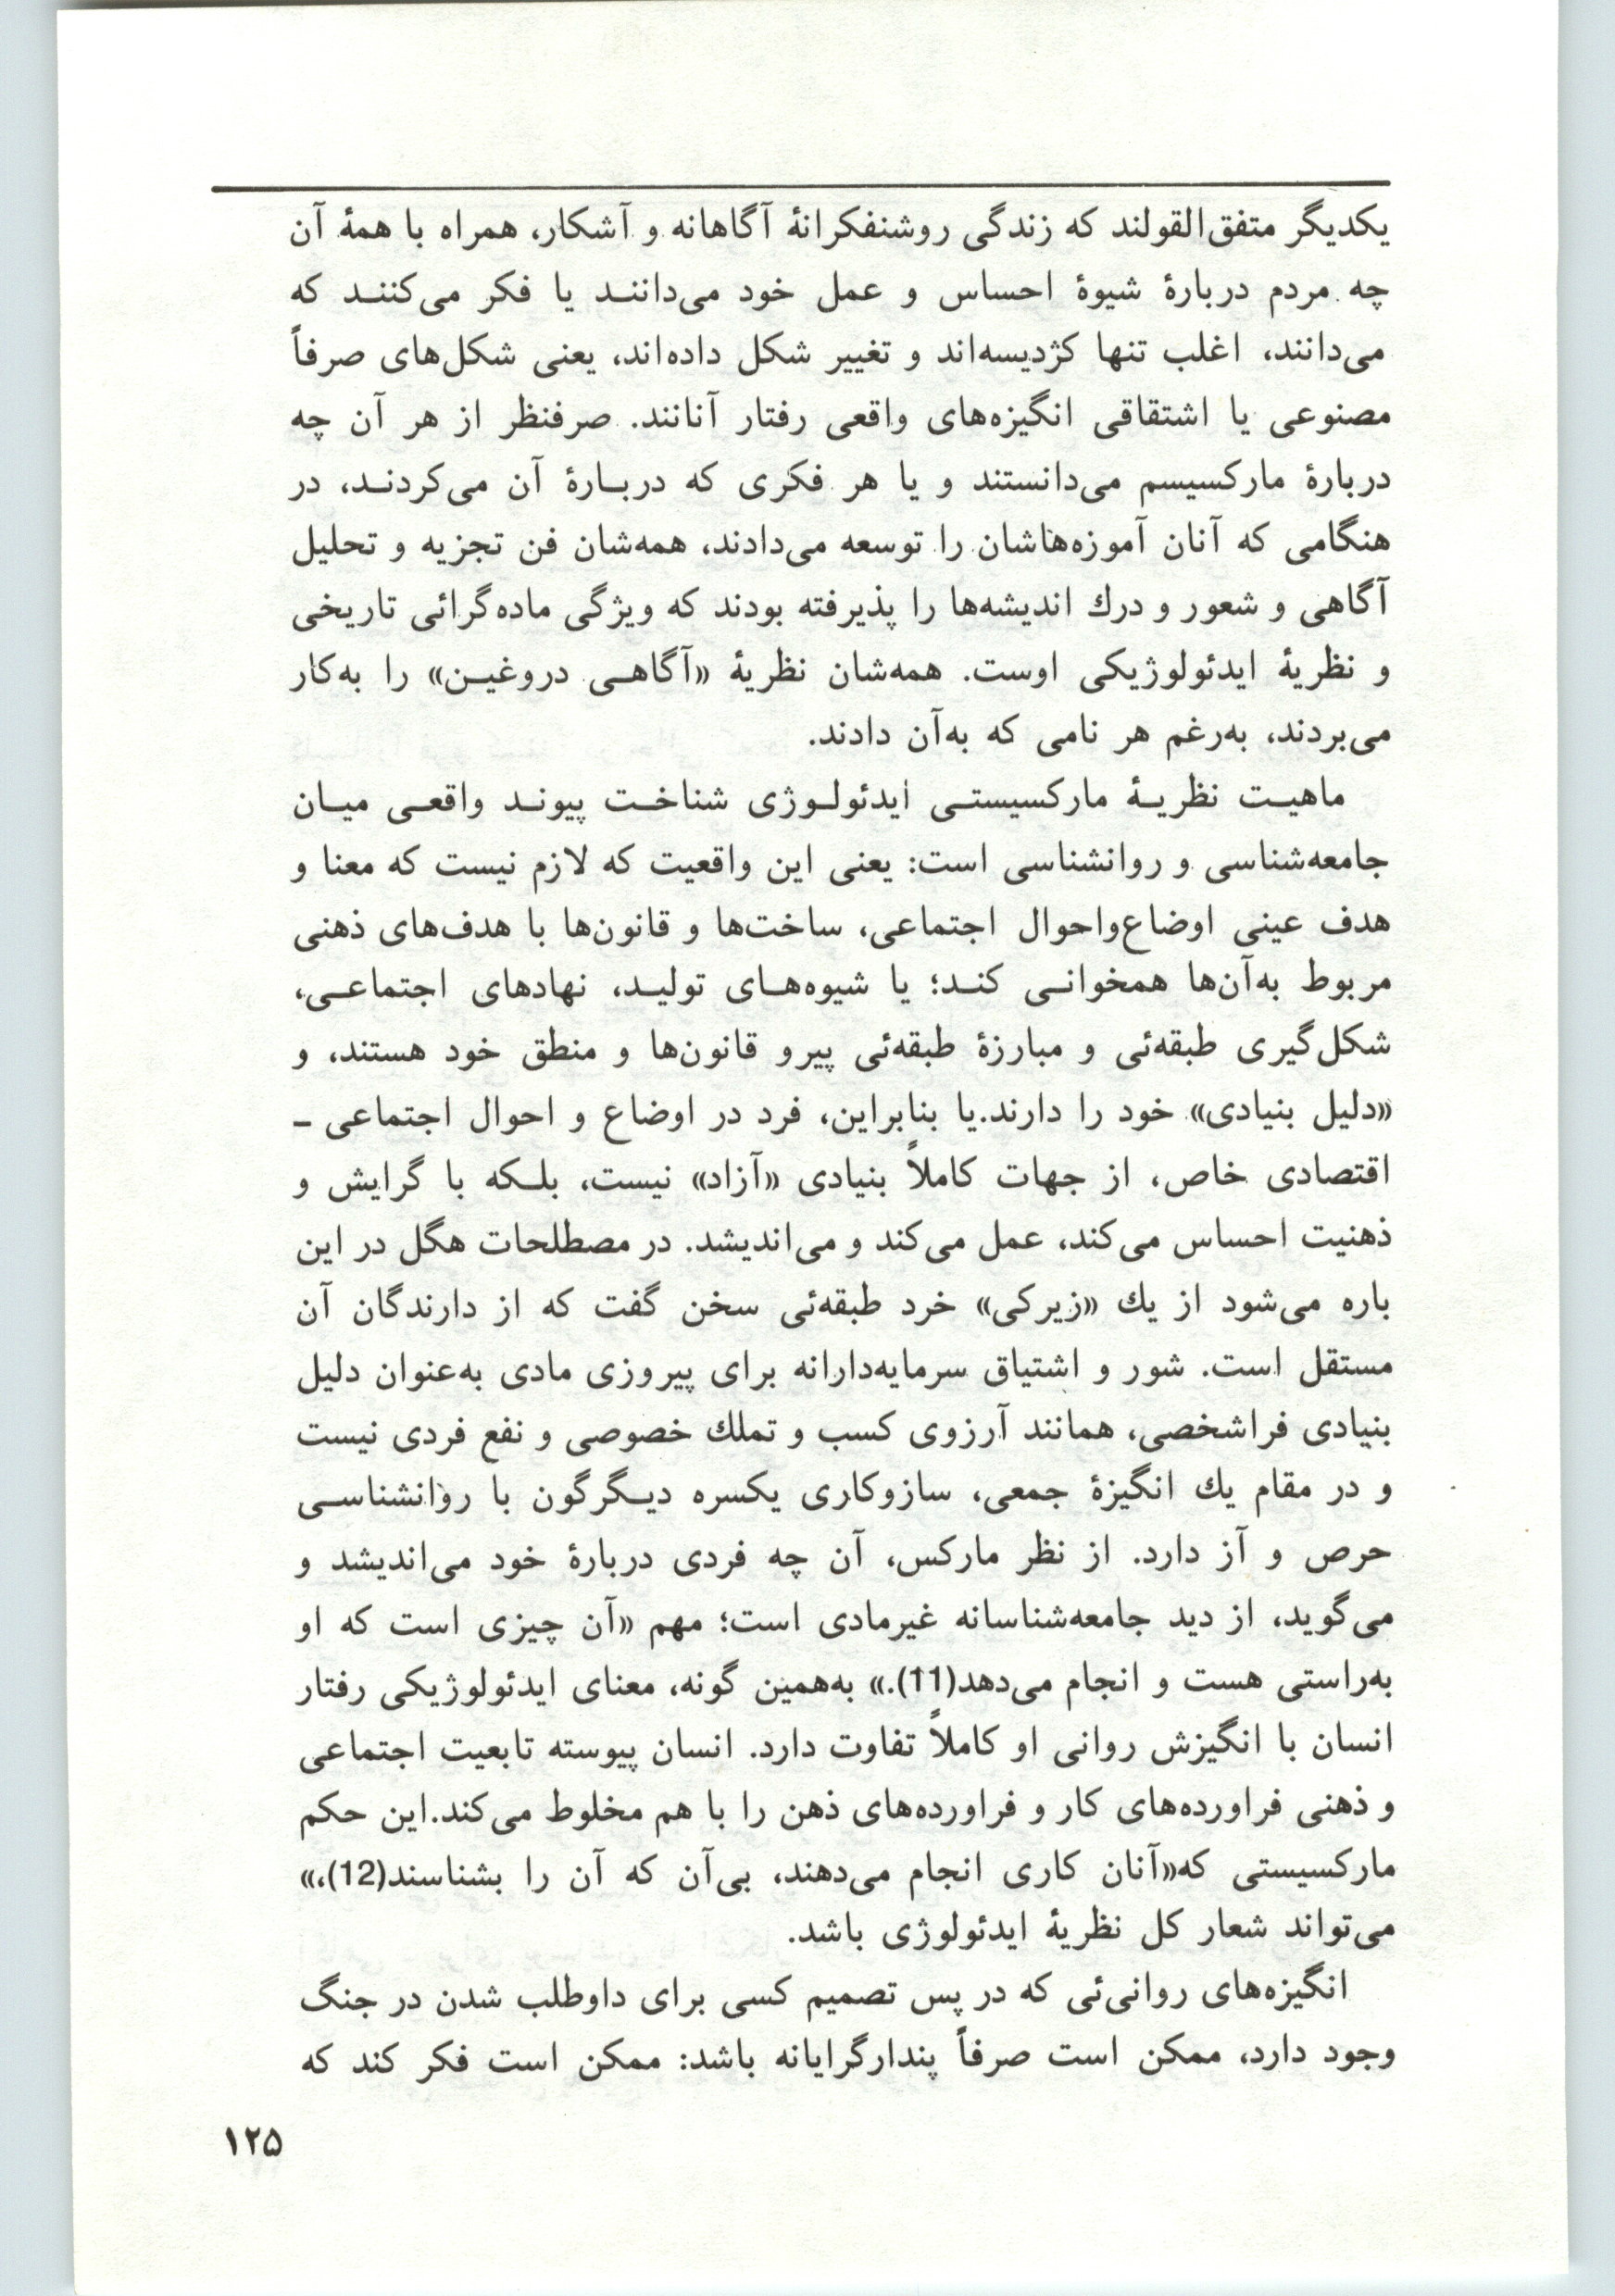 یکدیگر متفق‌القولند که زندگی روشنفکرانهٔ آگاهانه و آشکار، همراه با همهٔ آن
چه مردم دربارهٔ شیوهٔ احساس و عمل خود می‌دانند یا فکر می‌کنند که
می‌دانند، اغلب تنها کژدیسه‌اند و تغییر شکل داده‌اند، یعنی شکل‌های صرفاً
مصنوعی یا اشتقاقی انگیزه‌های واقعی رفتار آنانند. صرفنظر از هر آن چه
دربارهٔ مارکسیسم می‌دانستند و یا هر فکری که دربارهٔ آن می‌کردند، در
هنگامی که آنان آموزه‌هاشان را توسعه می‌دادند، همه‌شان فن تجزیه و تحلیل
آگاهی و شعور و درك اندیشه‌ها را پذیرفته بودند که ویژگی ماده‌گرائی تاریخی
و نظریهٔ ایدئولوژیکی اوست. همه‌شان نظریهٔ «آگاهی دروغین» را به‌کار
می‌بردند، به‌رغم هر نامی که به‌آن دادند.
ماهیت نظریهٔ مارکسیستی ایدئولوژی شناخت پیوند واقعی میان
جامعه‌شناسی و روانشناسی است: یعنی این واقعیت که لازم نیست که معنا و
هدف عینی اوضاع‌واحوال اجتماعی، ساخت‌ها و قانون‌ها با هدف‌های ذهنی
مربوط به‌آن‌ها همخوانی کند؛ یا شیوه‌های تولید، نهادهای اجتماعی،
شکل‌گیری طبقه‌ئی و مبارزهٔ طبقه‌ئی پیرو قانون‌ها و منطق خود هستند، و
«دلیل بنیادی» خود را دارند.یا بنابراین، فرد در اوضاع و احوال اجتماعی ـ
اقتصادی خاص، از جهات کاملاً بنیادی «آزاد» نیست، بلکه با گرایش و
ذهنیت احساس می‌کند، عمل می‌کند و می‌اندیشد. در مصطلحات هگل در این
باره می‌شود از یك «زیرکی» خرد طبقه‌ئی سخن گفت که از دارندگان آن
مستقل است. شور و اشتیاق سرمایه‌دارانه برای پیروزی مادی به‌عنوان دلیل
بنیادی فراشخصی، همانند آرزوی کسب و تملك خصوصی و نفع فردی نیست
و در مقام یك انگیزهٔ جمعی، سازوکاری یکسره دیگرگون با روانشناسی
حرص و آز دارد. از نظر مارکس، آن چه فردی دربارهٔ خود می‌اندیشد و
می‌گوید، از دید جامعه‌شناسانه غیرمادی است؛ مهم «آن چیزی است که او
به‌راستی هست و انجام می‌دهد(11).» به‌همین گونه، معنای ایدئولوژیکی رفتار
انسان با انگیزش روانی او کاملاً تفاوت دارد. انسان پیوسته تابعیت اجتماعی
و ذهنی فراورده‌های کار و فراورده‌های ذهن را با هم مخلوط می‌کند.این حکم
مارکسیستی که«آنان کاری انجام می‌دهند، بی‌آن که آن را بشناسند(12)،»
می‌تواند شعار کل نظریهٔ ایدئولوژی باشد.
انگیزه‌های روانی‌ئی که در پس تصمیم کسی برای داوطلب شدن در جنگ
وجود دارد، ممکن است صرفاً پندارگرایانه باشد: ممکن است فکر کند که
۱۲۵